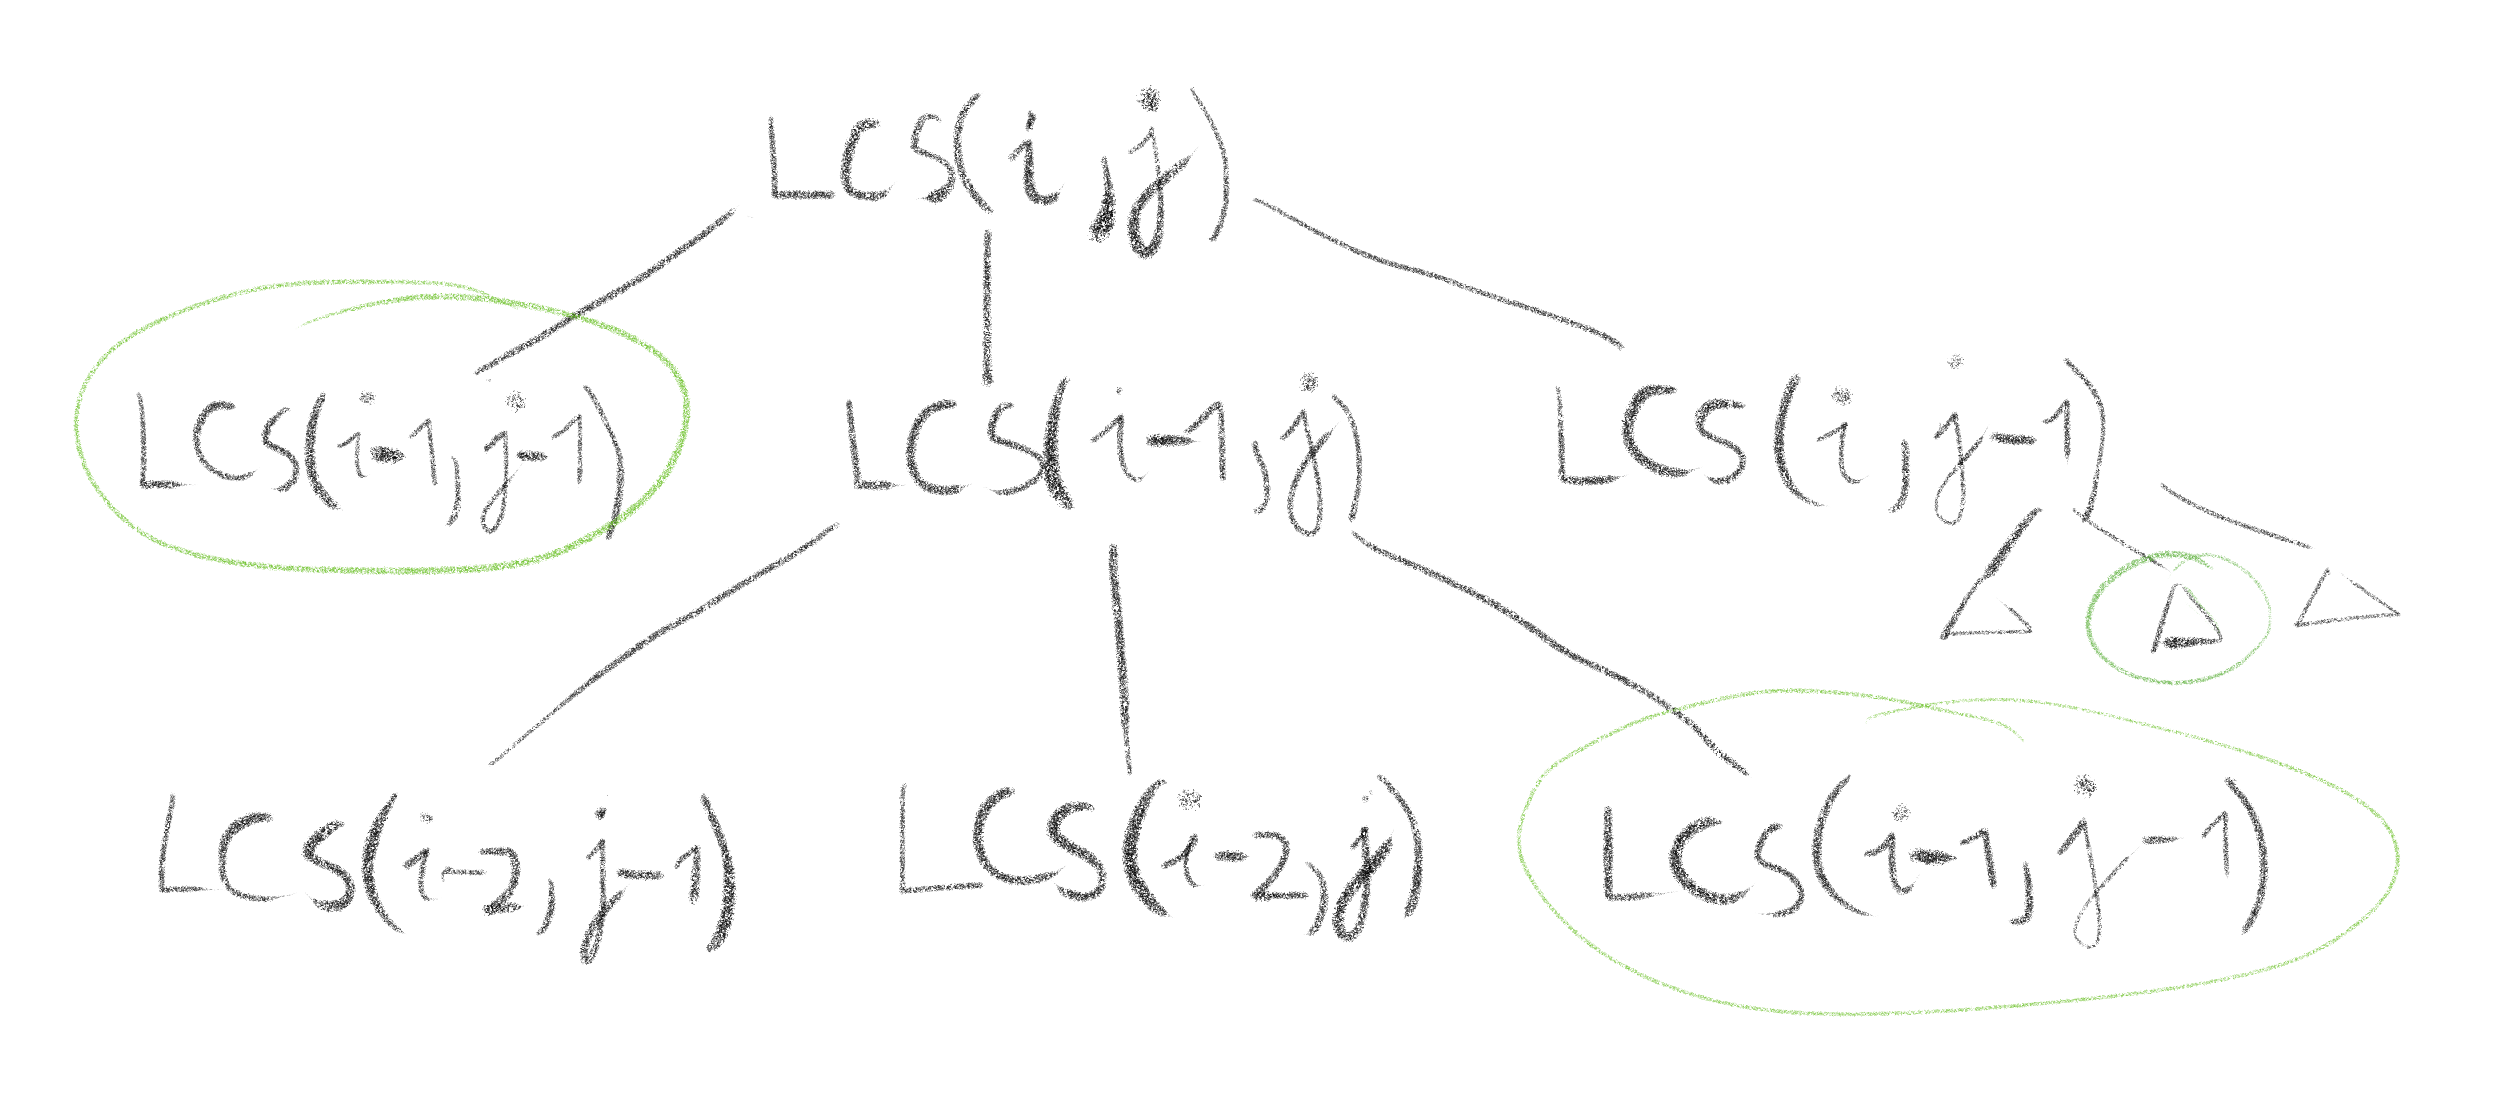 LCS(i,j)
LCS(i-1,j-1) LCS(i-1,j) LCS(i,j-1)
LCS(i-2,j-1) LCS(i-2,j) LCS(i-1,j-1)